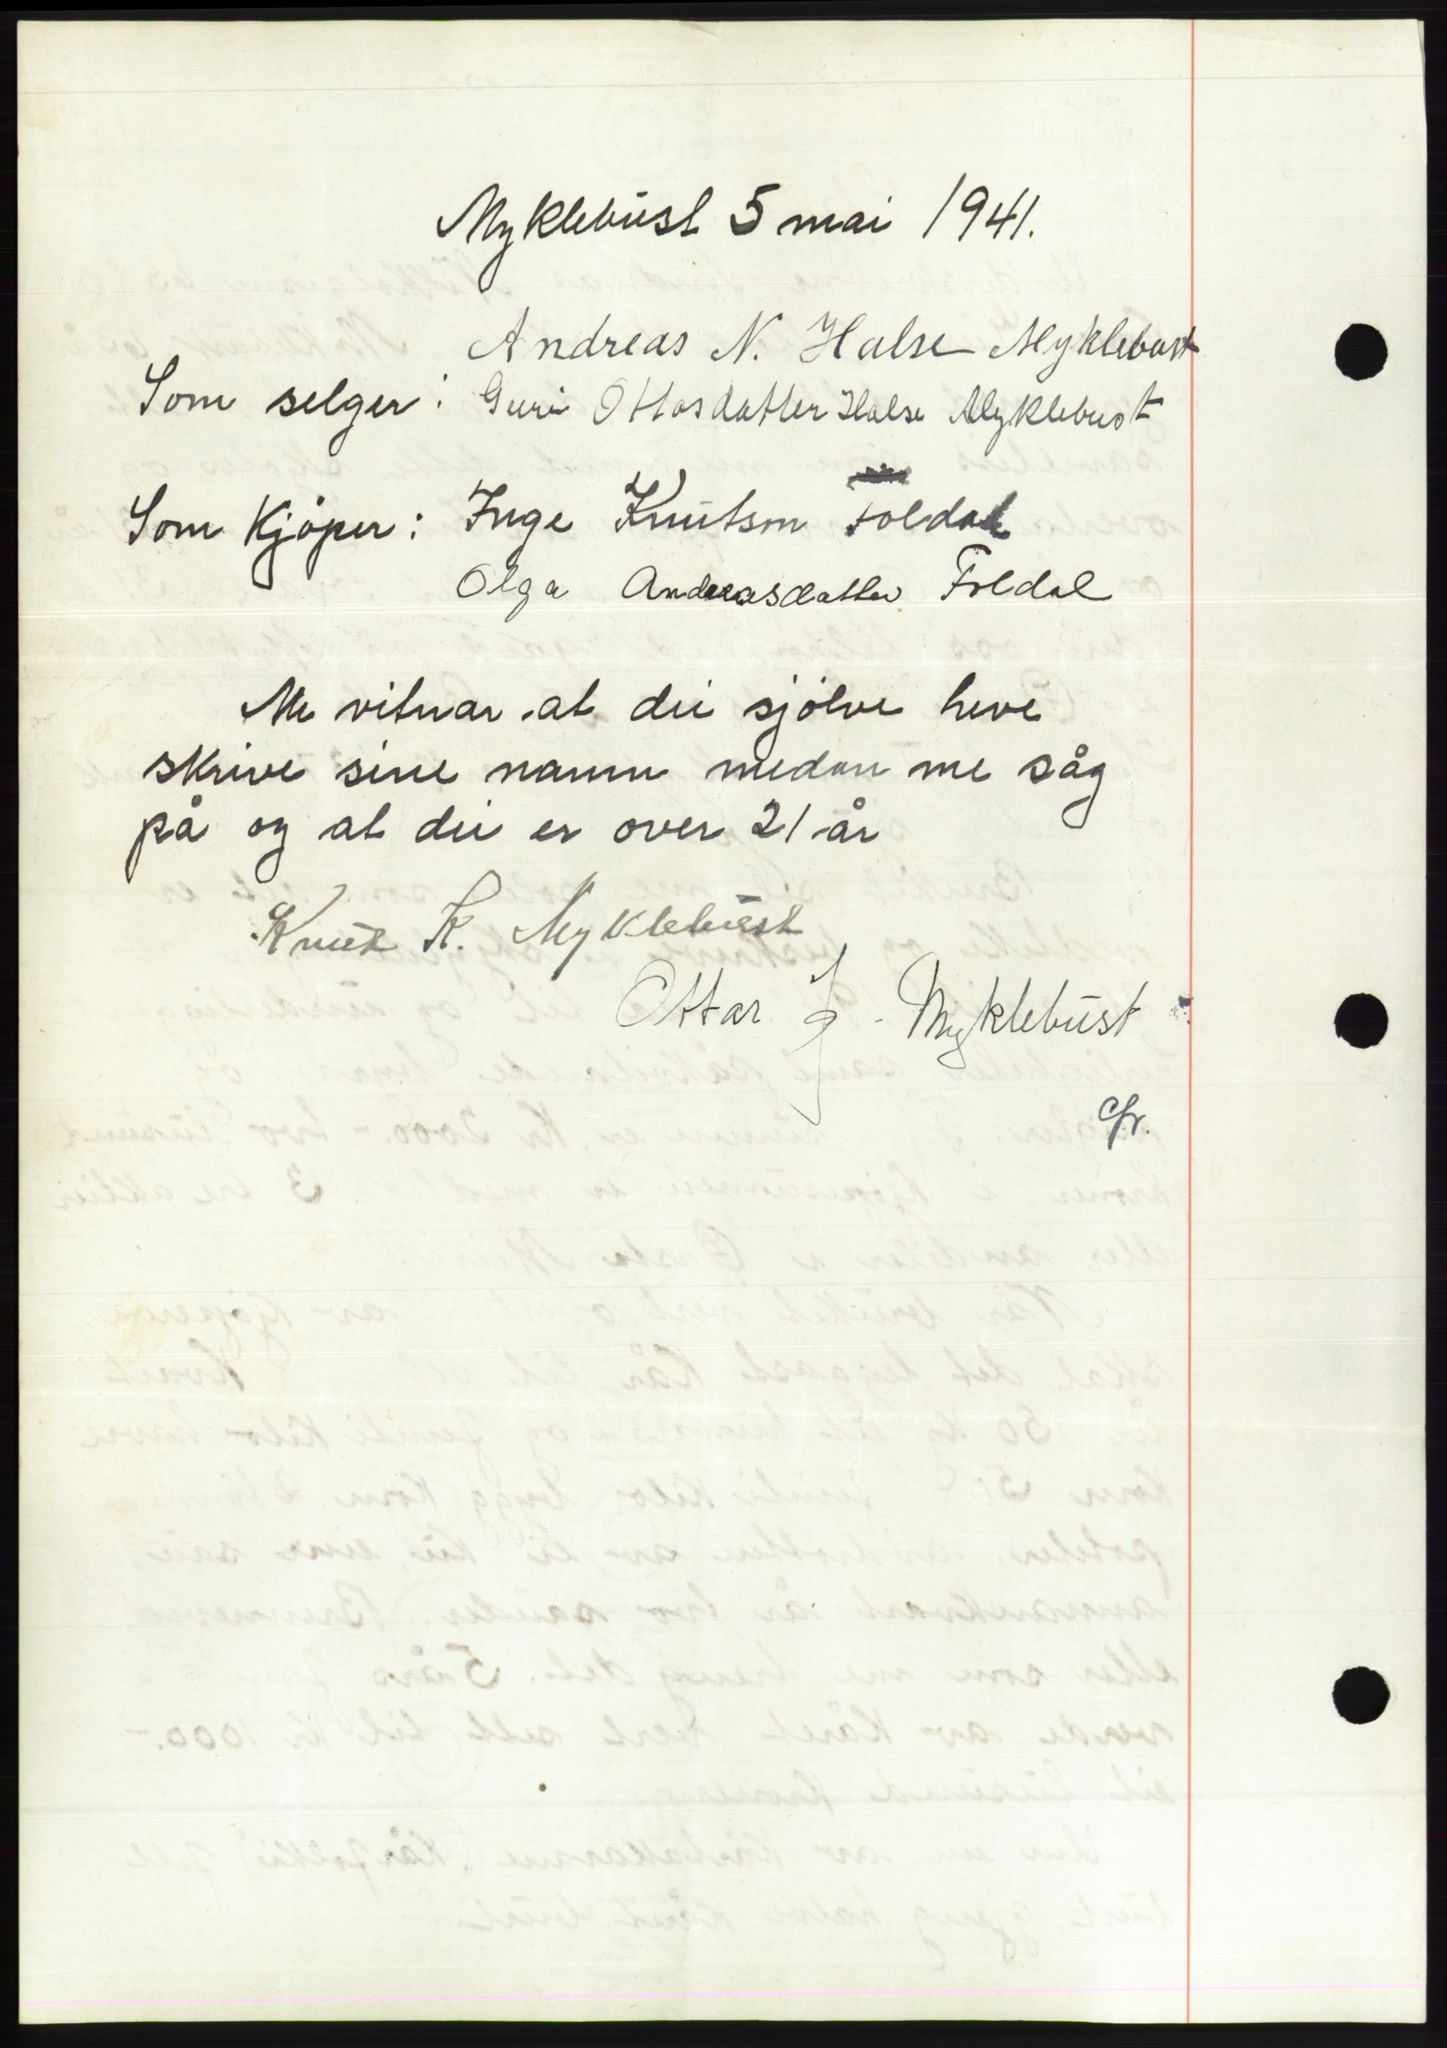 Myklebust 5 mai 1941.
Andreas N. Halse Myklebust
Som selger: Guri Ottosdatter Halse Myklebust
Som Kjøper: Inge Knutson Foldal
Olga Andreasdatter Foldal
Me vitnar at dei sjølve heve
skrive sine namn medan me såg
på og at dei er over 21 år
Knut K. Myklebust
Ottar J. Myklebust